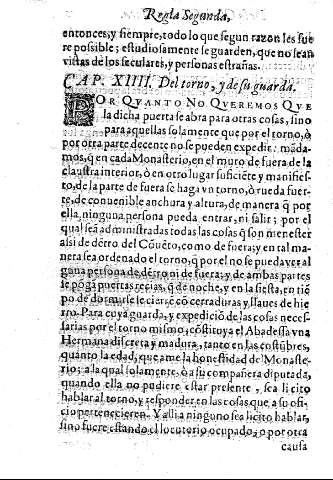 Regla Segunda,
entonces, y siempre, todo lo que segun razon les fue
re possible; estudiosamente se guarden, que no sean
vistas de los seculares, y personas estrañas.
CAP. XIIII. Del torno, y de su guarda.
POR QVANTO NO QVEREMOS QVE
la dicha puerta se abra para otras cosas, sino
para aquellas solamente que por el torno, ò
por otra parte decente no se pueden expedir: mãda-
mos, q̃ en cada Monasterio, en el muro de fuera de la
claustra interior, ò en otro lugar suficiẽte y manifies-
to, de la parte de fuera se haga vn torno, ò rueda fuer-
te, de conuenible anchura y altura, de manera q̃ por
ella, ninguna persona pueda entrar, ni salir; por el
qual seã administradas todas las cosas q̃ son menester
assi de dẽtro del Cõuẽto, como de fuera; y en tal ma-
nera sea ordenado el torno, q̃ por el no se pueda ver al
guna persona de dẽtro ni de fuera; y de ambas partes
se põgã puertas recias, q̃ de noche, y en la siesta, en tiẽ
po de dormir se cierrẽ cõ cerraduras y llaues de hie
rro. Para cuya guarda, y expediciõ de las cosas neces-
sarias por el torno mismo, cõstituya el Abadessa vna
Hermana discreta y madura, tanto en las costũbres,
quanto la edad, que ame la honestidad de Monaste-
rio; a la qual solamente, ò a su compañera diputada,
quando ella no pudiere estar presente, sea licito
hablar al torno, y responder en las cosas que a su ofi-
cio pertenecieren. Y alli a ninguno sea licito hablar,
sino fuere estando el locutorio ocupado, o por otra
causa